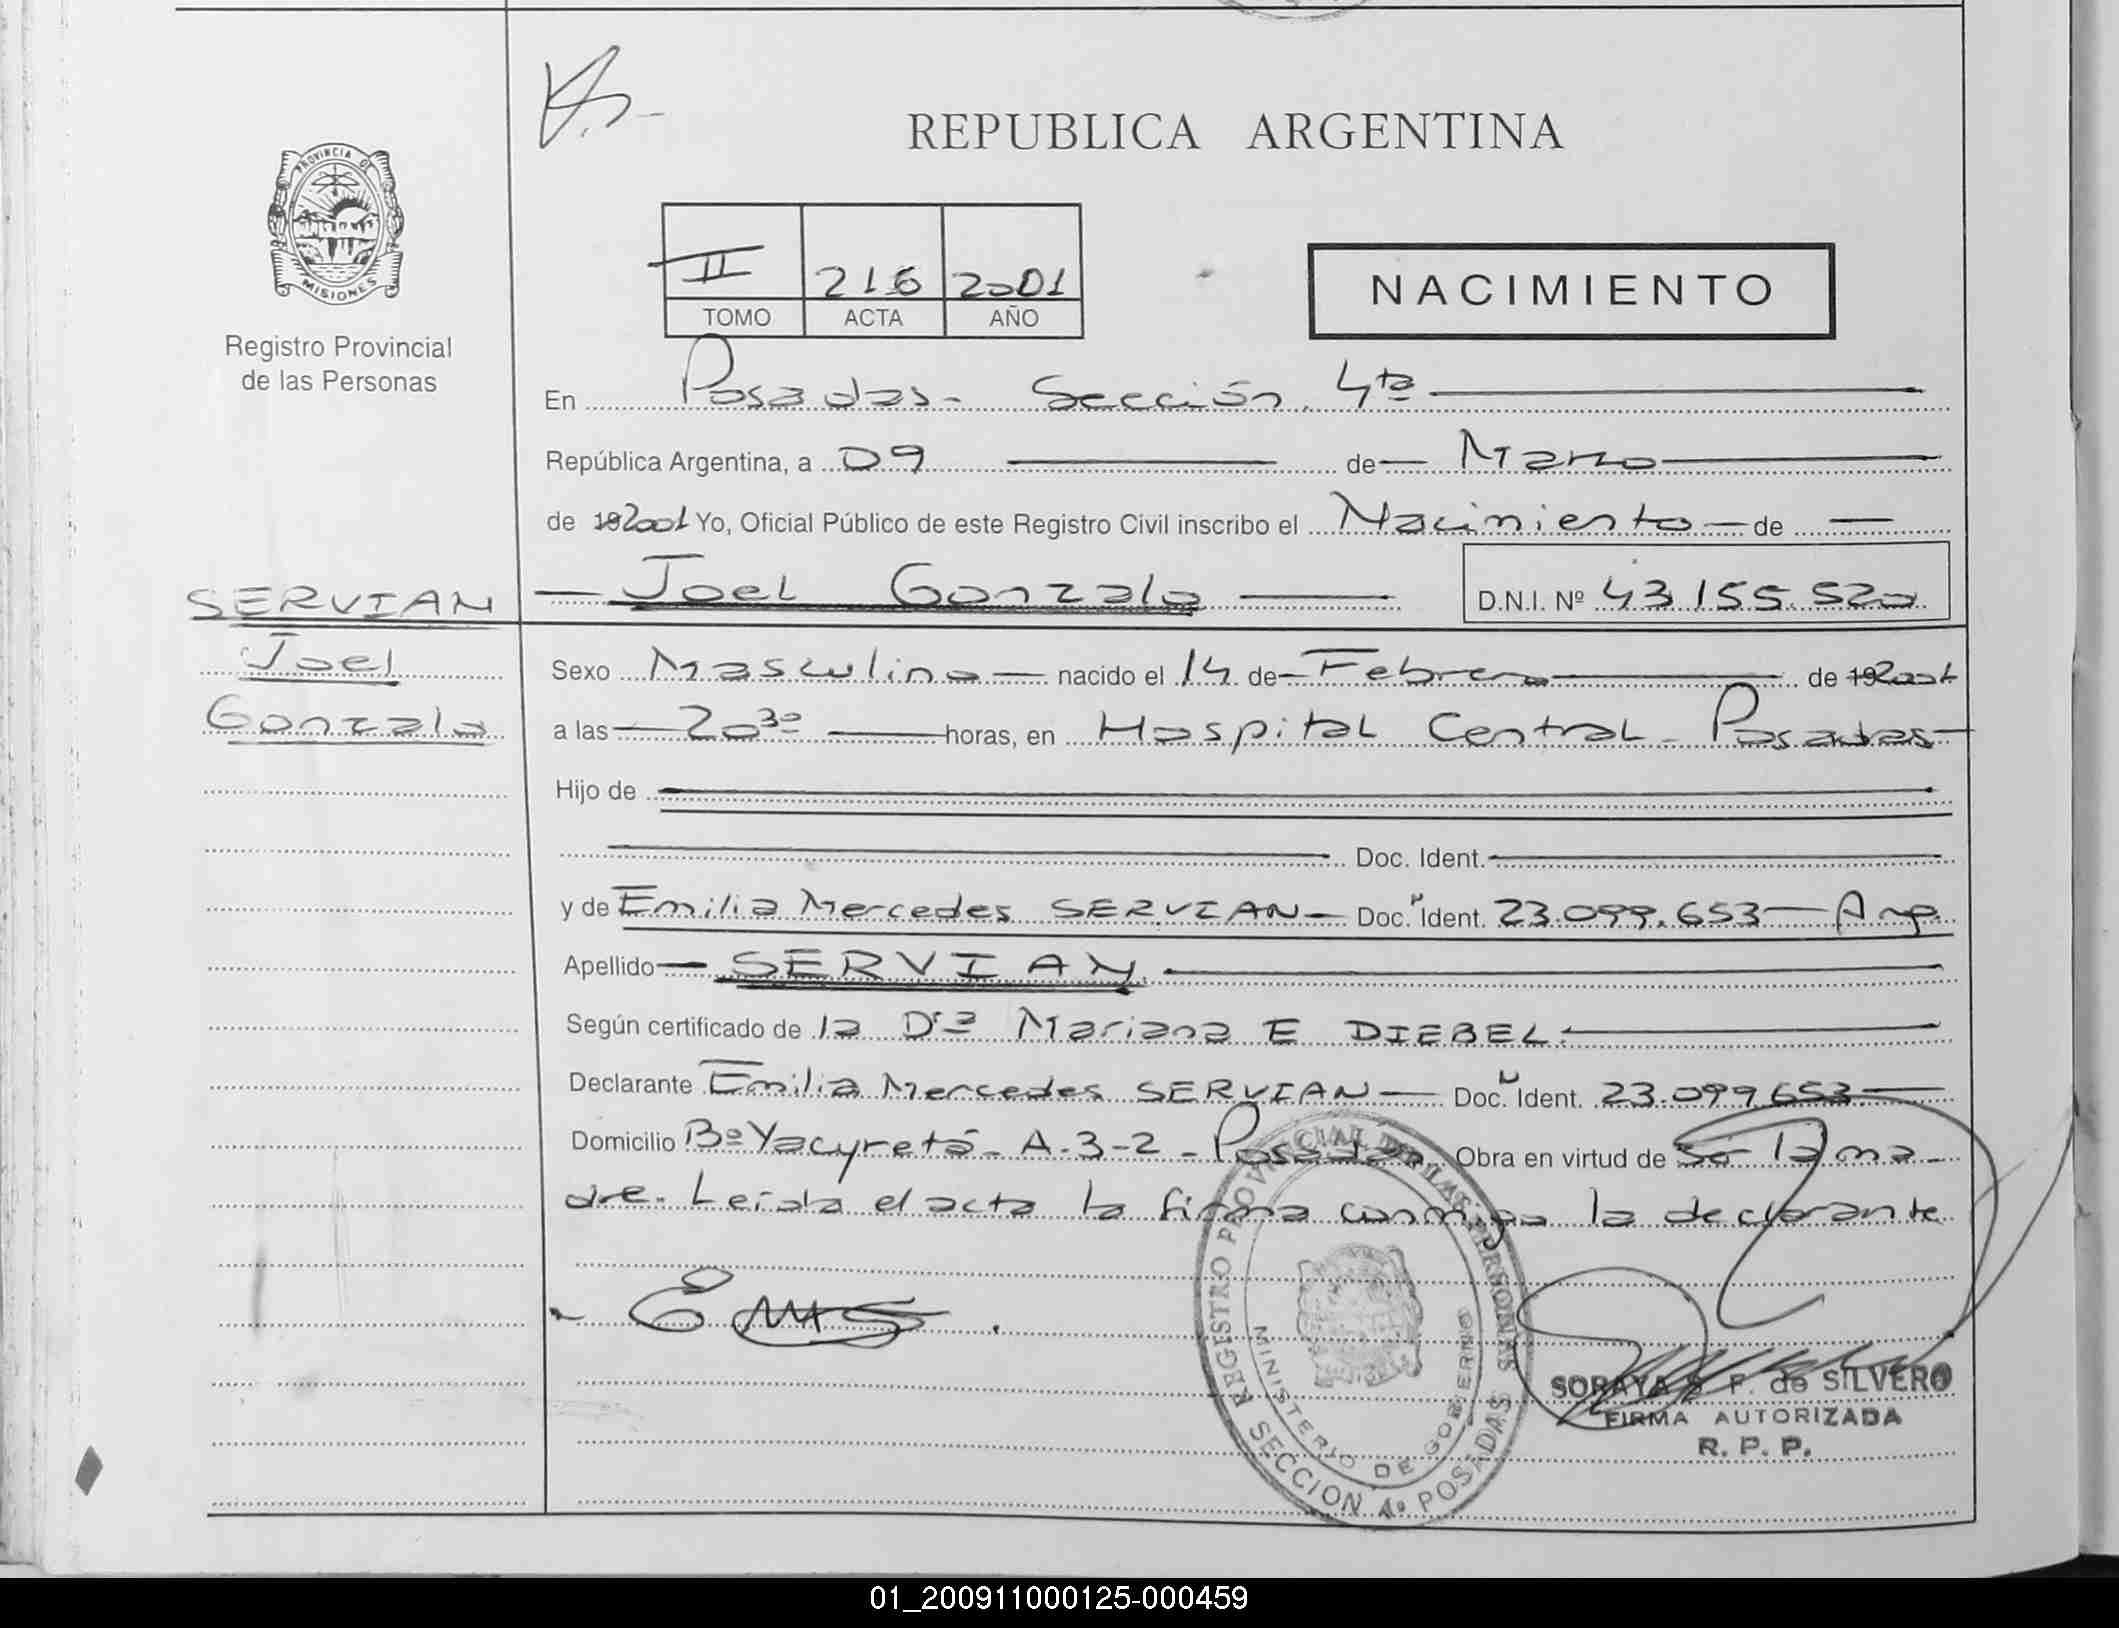 REPUBLICA ARGENTINA
PROVINCIA DE
MISIONES
Registro Provincial
de las Personas
II 216 2001
TOMO ACTA AÑO
NACIMIENTO
En Posadas - Sección 4ta
República Argentina, a 09 de Marzo
de 192001 Yo, Oficial Público de este Registro Civil inscribo el Nacimiento de
Joel Gonzalo D.N.I. Nº 43.155.520
SERVIAN
Joel
Gonzalo
Sexo Masculino nacido el 14 de Febrero de 192001
a las 20 30 horas, en Hospital Central - Posadas
Hijo de
Doc. Ident.
y de Emilia Mercedes SERVIAN Doc. Ident. 23.099.653 - Arg.
Apellido SERVIAN
Según certificado de la Dra Mariana E DIEBEL
Declarante Emilia Mercedes SERVIAN Doc. Ident. 23.099.653
Domicilio Bº Yacyretá - A-3-2 - Posadas Obra en virtud de Ser la ma-
dre. Leída el acta la firma conmigo la declarante
REGISTRO PROVINCIAL DE LAS PERSONAS
MINISTERIO DE GOBIERNO
SECCION 4º POSADAS
SORAYA S. F. de SILVERO
FIRMA AUTORIZADA
R. P. P.
01_200911000125-000459